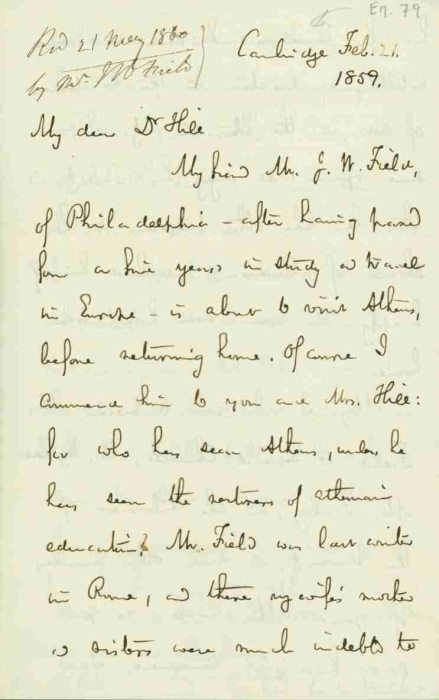 En. 79
Rcd 21 May 1860
by Mr. J W Field
Cambridge Feb. 21.
1859.
My dear Dr Hill
My friend Mr. J. W. Field,
of Philadelphia - after having passed
four or five years in study & travel
in Europe - is about to visit Athens,
before returning home. Of course I
commend him to you and Mrs. Hill:
for who has seen Athens, unless he
has seen the restorers of Athenian
education? Mr. Field was last winter
in Rome, and there my wife's mother
& sisters were much indebted to